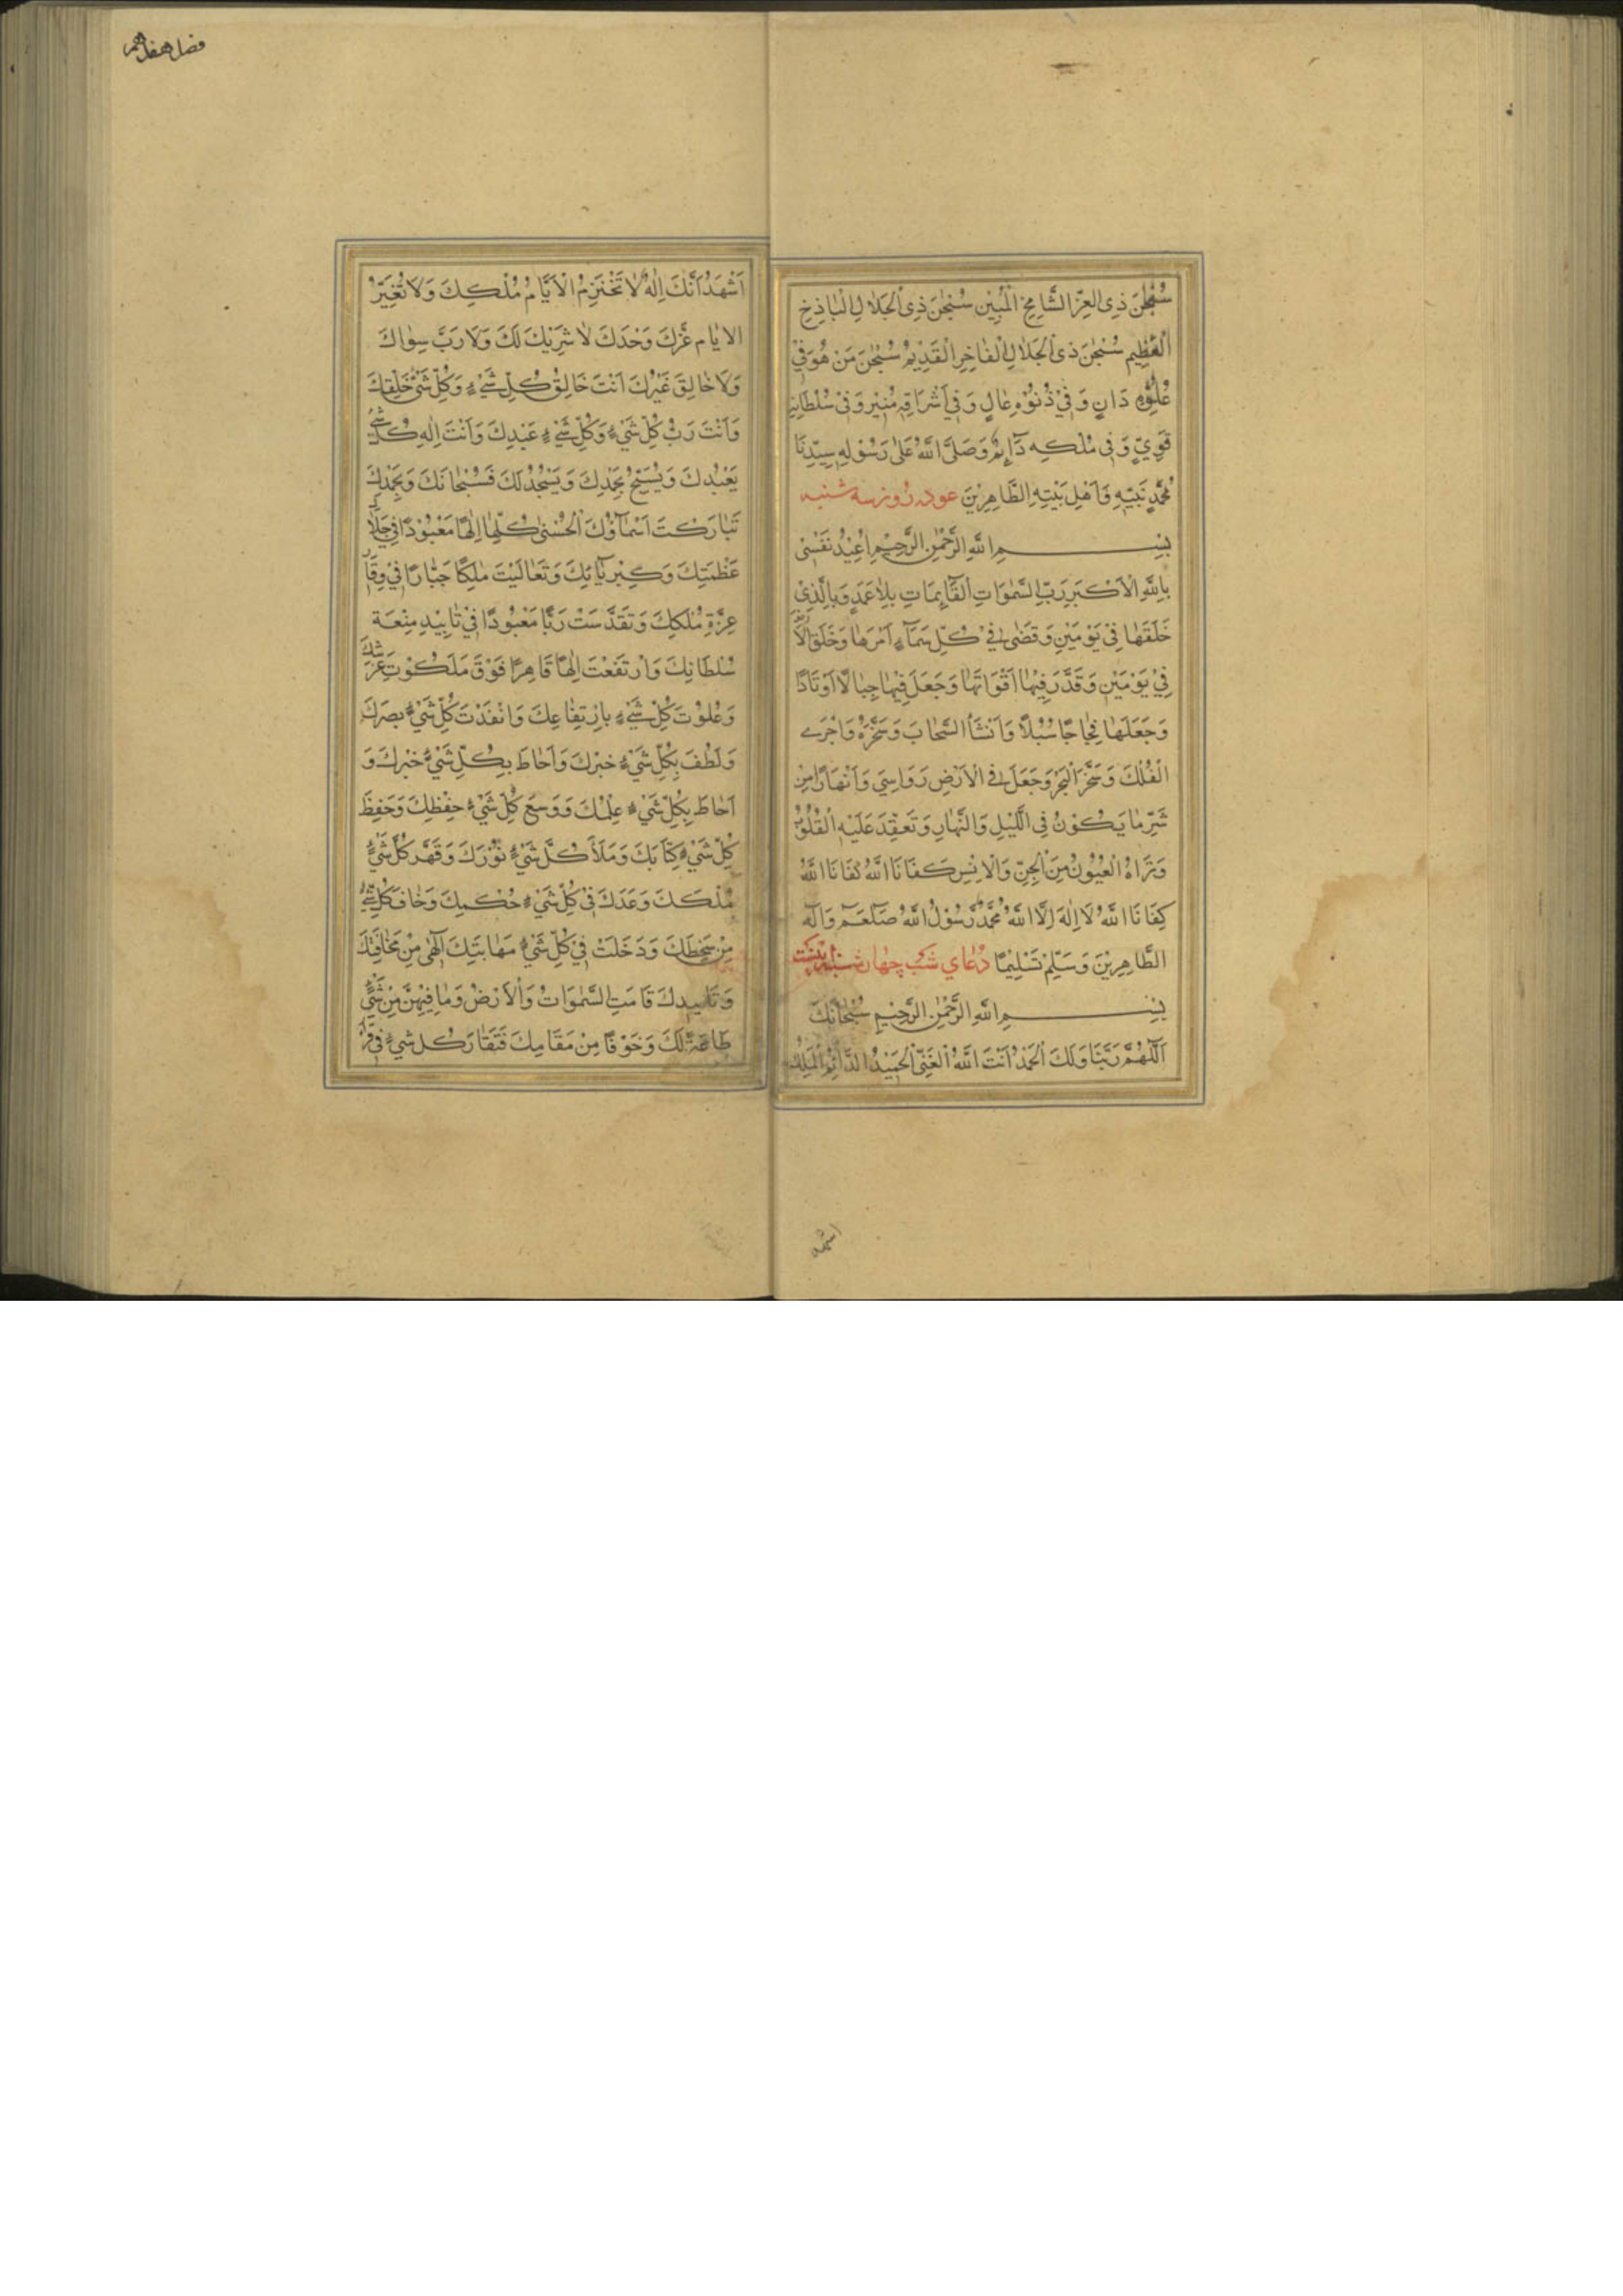 سُبْحٰنَ ذِي الْعِزِّ الشَّامِخِ الْمُبِيْنِ سُبْحٰنَ ذِي الْجَلَالِ الْبَاذِخِ
الْعَظِيْمِ سُبْحٰنَ ذِي الْجَلَالِ الْفَاخِرِ الْقَدِيْمِ سُبْحٰنَ مَنْ هُوَ فِيْ
عُلُوِّهِ دَانٍ وَفِيْ دُنُوِّهِ عَالٍ وَفِيْ اَشْرَاقِهِ مُنِيْرٌ وَفِيْ سُلْطَانِهِ
قَوِيٌّ وَفِي مُلْكِهِ دَآئِمٌ وَصَلَّى اللّٰهُ عَلٰى رَسُوْلِهِ سَيِّدِنَا
مُحَمَّدٍ نَبِيِّهِ وَاَهْلِ بَيْتِهِ الطَّاهِرِيْنَ عوده روز سه شنبه
بِسْمِ اللّٰهِ الرَّحْمٰنِ الرَّحِيْمِ اُعِيْذُ نَفْسِيْ
بِاللّٰهِ الْاَكْبَرِ رَبِّ السَّمٰوَاتِ الْقَآئِمَاتِ بِلَا عَمَدٍ وَبِالَّذِيْ
خَلَقَهَا فِيْ يَوْمَيْنِ وَقَضٰى فِيْ كُلِّ سَمَآءٍ اَمْرَهَا وَخَلَقَ الْاَرْضَ
فِيْ يَوْمَيْنِ وَقَدَّرَ فِيْهَا اَقْوَاتَهَا وَجَعَلَ فِيْهَا جِبَالًا اَوْتَادًا
وَجَعَلَهَا فِجَاجًا سُبُلًا وَاَنْشَأَ السَّحَابَ وَسَخَّرَهُ وَاَجْرَى
الْفُلْكَ وَسَخَّرَ الْبَحْرَ وَجَعَلَ فِي الْاَرْضِ رَوَاسِيَ وَاَنْهَارًا مِنْ
شَرِّ مَا يَكُوْنُ فِي اللَّيْلِ وَالنَّهَارِ وَتَعْقِدَ عَلَيْهِ الْقُلُوْبُ
وَتَرَاهُ الْعُيُوْنُ مِنَ الْجِنِّ وَالْاِنْسِ كَفَانَا اللّٰهُ كَفَانَا اللّٰهُ
كَفَانَا اللّٰهُ لَا اِلٰهَ اِلَّا اللّٰهُ مُحَمَّدٌ رَسُوْلُ اللّٰهِ صَلَّعَمْ وَآلِهِ
الطَّاهِرِيْنَ وَسَلِّمْ تَسْلِيْمًا دُعَاي شَب چهار شنبه
بِسْمِ اللّٰهِ الرَّحْمٰنِ الرَّحِيْمِ سُبْحَانَكَ
اَللّٰهُمَّ رَبَّنَا وَلَكَ الْحَمْدُ اَنْتَ اللّٰهُ الْغَنِيُّ الْحَمِيْدُ الدَّآئِمُ الْمَلِكُ
اشهد
فصل هفدهم
اَشْهَدُ اَنَّكَ اِلٰهٌ لَا تَخْتَرِمُ الْاَيَّامُ مُلْكِكَ وَلَا تُغَيِّرُ
الايام عِزَّكَ وَحْدَكَ لَا شَرِيْكَ لَكَ وَلَا رَبَّ سِوَاكَ
وَلَا خَالِقَ غَيْرُكَ اَنْتَ خَالِقُ كُلِّ شَيْءٍ وَكُلِّ شَيْءٍ خَلْقِكَ
وَاَنْتَ رَبُّ كُلِّ شَيْءٍ وَكُلِّ شَيْءٍ عَبْدِكَ وَاَنْتَ اِلٰهِ كُلِّ شَيْءٍ
يَعْبُدُكَ وَيُسَبِّحُ بِحَمْدِكَ وَيَسْجُدُ لَكَ فَسُبْحَانَكَ وَبِحَمْدِكَ
تَبَارَكْتَ اَسْمَآؤُكَ الْحُسْنٰى كُلِّهَا اِلٰهًا مَعْبُوْدًا فِيْ جَلَالِ
عَظْمَتِكَ وَكِبْرِيَآئِكَ وَتَعَالَيْتَ مَلِكًا جَبَّارًا فِيْ وَقَارِ
عِزَّةِ مُلْكِكَ وَتَقَدَّسَتْ رَبًّا مَعْبُوْدًا فِيْ تَابِيْدِ مِنْعَةِ
سُلْطَانِكَ وَارْتَفَعْتَ اِلٰهًا قَاهِرًا فَوْقَ مَلَكُوْتِ عَرْشِكَ
وَعَلَوْتَ كُلِّ شَيْءٍ بِارْتِفَاعِكَ وَانْفَذْتَ كُلِّ شَيْءٍ بصرَكَ
وَلَطُفَ بِكُلِّ شَيْءٍ خبْرِكَ وَاَحَاطَ بِكُلِّ شَيْءٍ خُبْرِكَ وَ
اَحَاطَ بِكُلِّ شَيْءٍ عِلْمُكَ وَوَسِعَ كُلِّ شَيْءٍ حِفْظِكَ وَحَفِظَ
كُلِّ شَيْءٍ كِتَابَكَ وَمَلَأَ كُلَّ شَيْءٍ نُوْرَكَ وَقَهَرَ كُلَّ شَيْءٍ
مُلْكَكَ وَعَدَلَكَ فِيْ كُلِّ شَيْءٍ حُكْمِكَ وَخَافَ كُلِّ شَيْءٍ
مِنْ سَخَطِكَ وَدَخَلَتْ فِيْ كُلِّ شَيْءٍ مَهَابَتِكَ اِلٰهِيْ مِنْ مَخَافَتِكَ
وَتَابِيدِكَ قَامَتِ السَّمٰوَاتُ وَالْاَرْضُ وَمَا فِيْهِنَّ مِنْ شَيْءٍ
طَاعَةً لَكَ وَخَوْفًا مِنْ مَقَامِكَ فَتَقَارَ كل شيْءٍ فِيْ